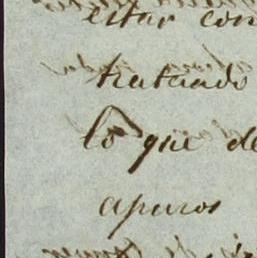 estar con
tratando
lo que de
apuros